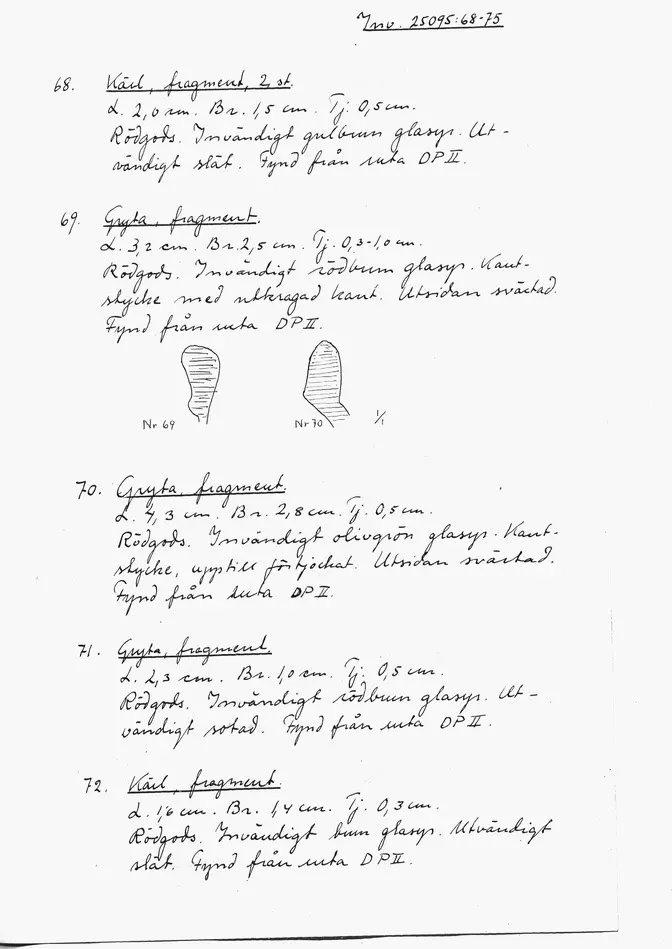 Inv. 25095:68-75
68. Kärl, fragment, 2 st.
L. 2,0 cm. Br. 1,5 cm. Tj. 0,5 cm.
Rödgods. Invändigt gulbrun glasyr. Ut-
vändigt slät. Fynd från ruta DP II.
69. Gryta, fragment.
L. 3,2 cm. Br. 2,5 cm. Tj. 0,3-1,0 cm.
Rödgods. Invändigt rödbrun glasyr. Kant-
stycke med utkragad kant. Utsidan svärtad.
Fynd från ruta DP II.
Nr 69 Nr 70 1/1
70. Gryta, fragment.
L. 4,3 cm. Br. 2,8 cm. Tj. 0,5 cm.
Rödgods. Invändigt olivgrön glasyr. Kant-
stycke, upptill förtjockat. Utsidan svärtad.
Fynd från ruta DP II.
71. Gryta, fragment.
L. 2,3 cm. Br. 1,0 cm. Tj. 0,5 cm.
Rödgods. Invändigt rödbrun glasyr. Ut-
vändigt sotad. Fynd från ruta DP II.
72. Kärl, fragment.
L. 1,6 cm. Br. 1,4 cm. Tj. 0,3 cm.
Rödgods. Invändigt brun glasyr. Utvändigt
slät. Fynd från ruta DP II.